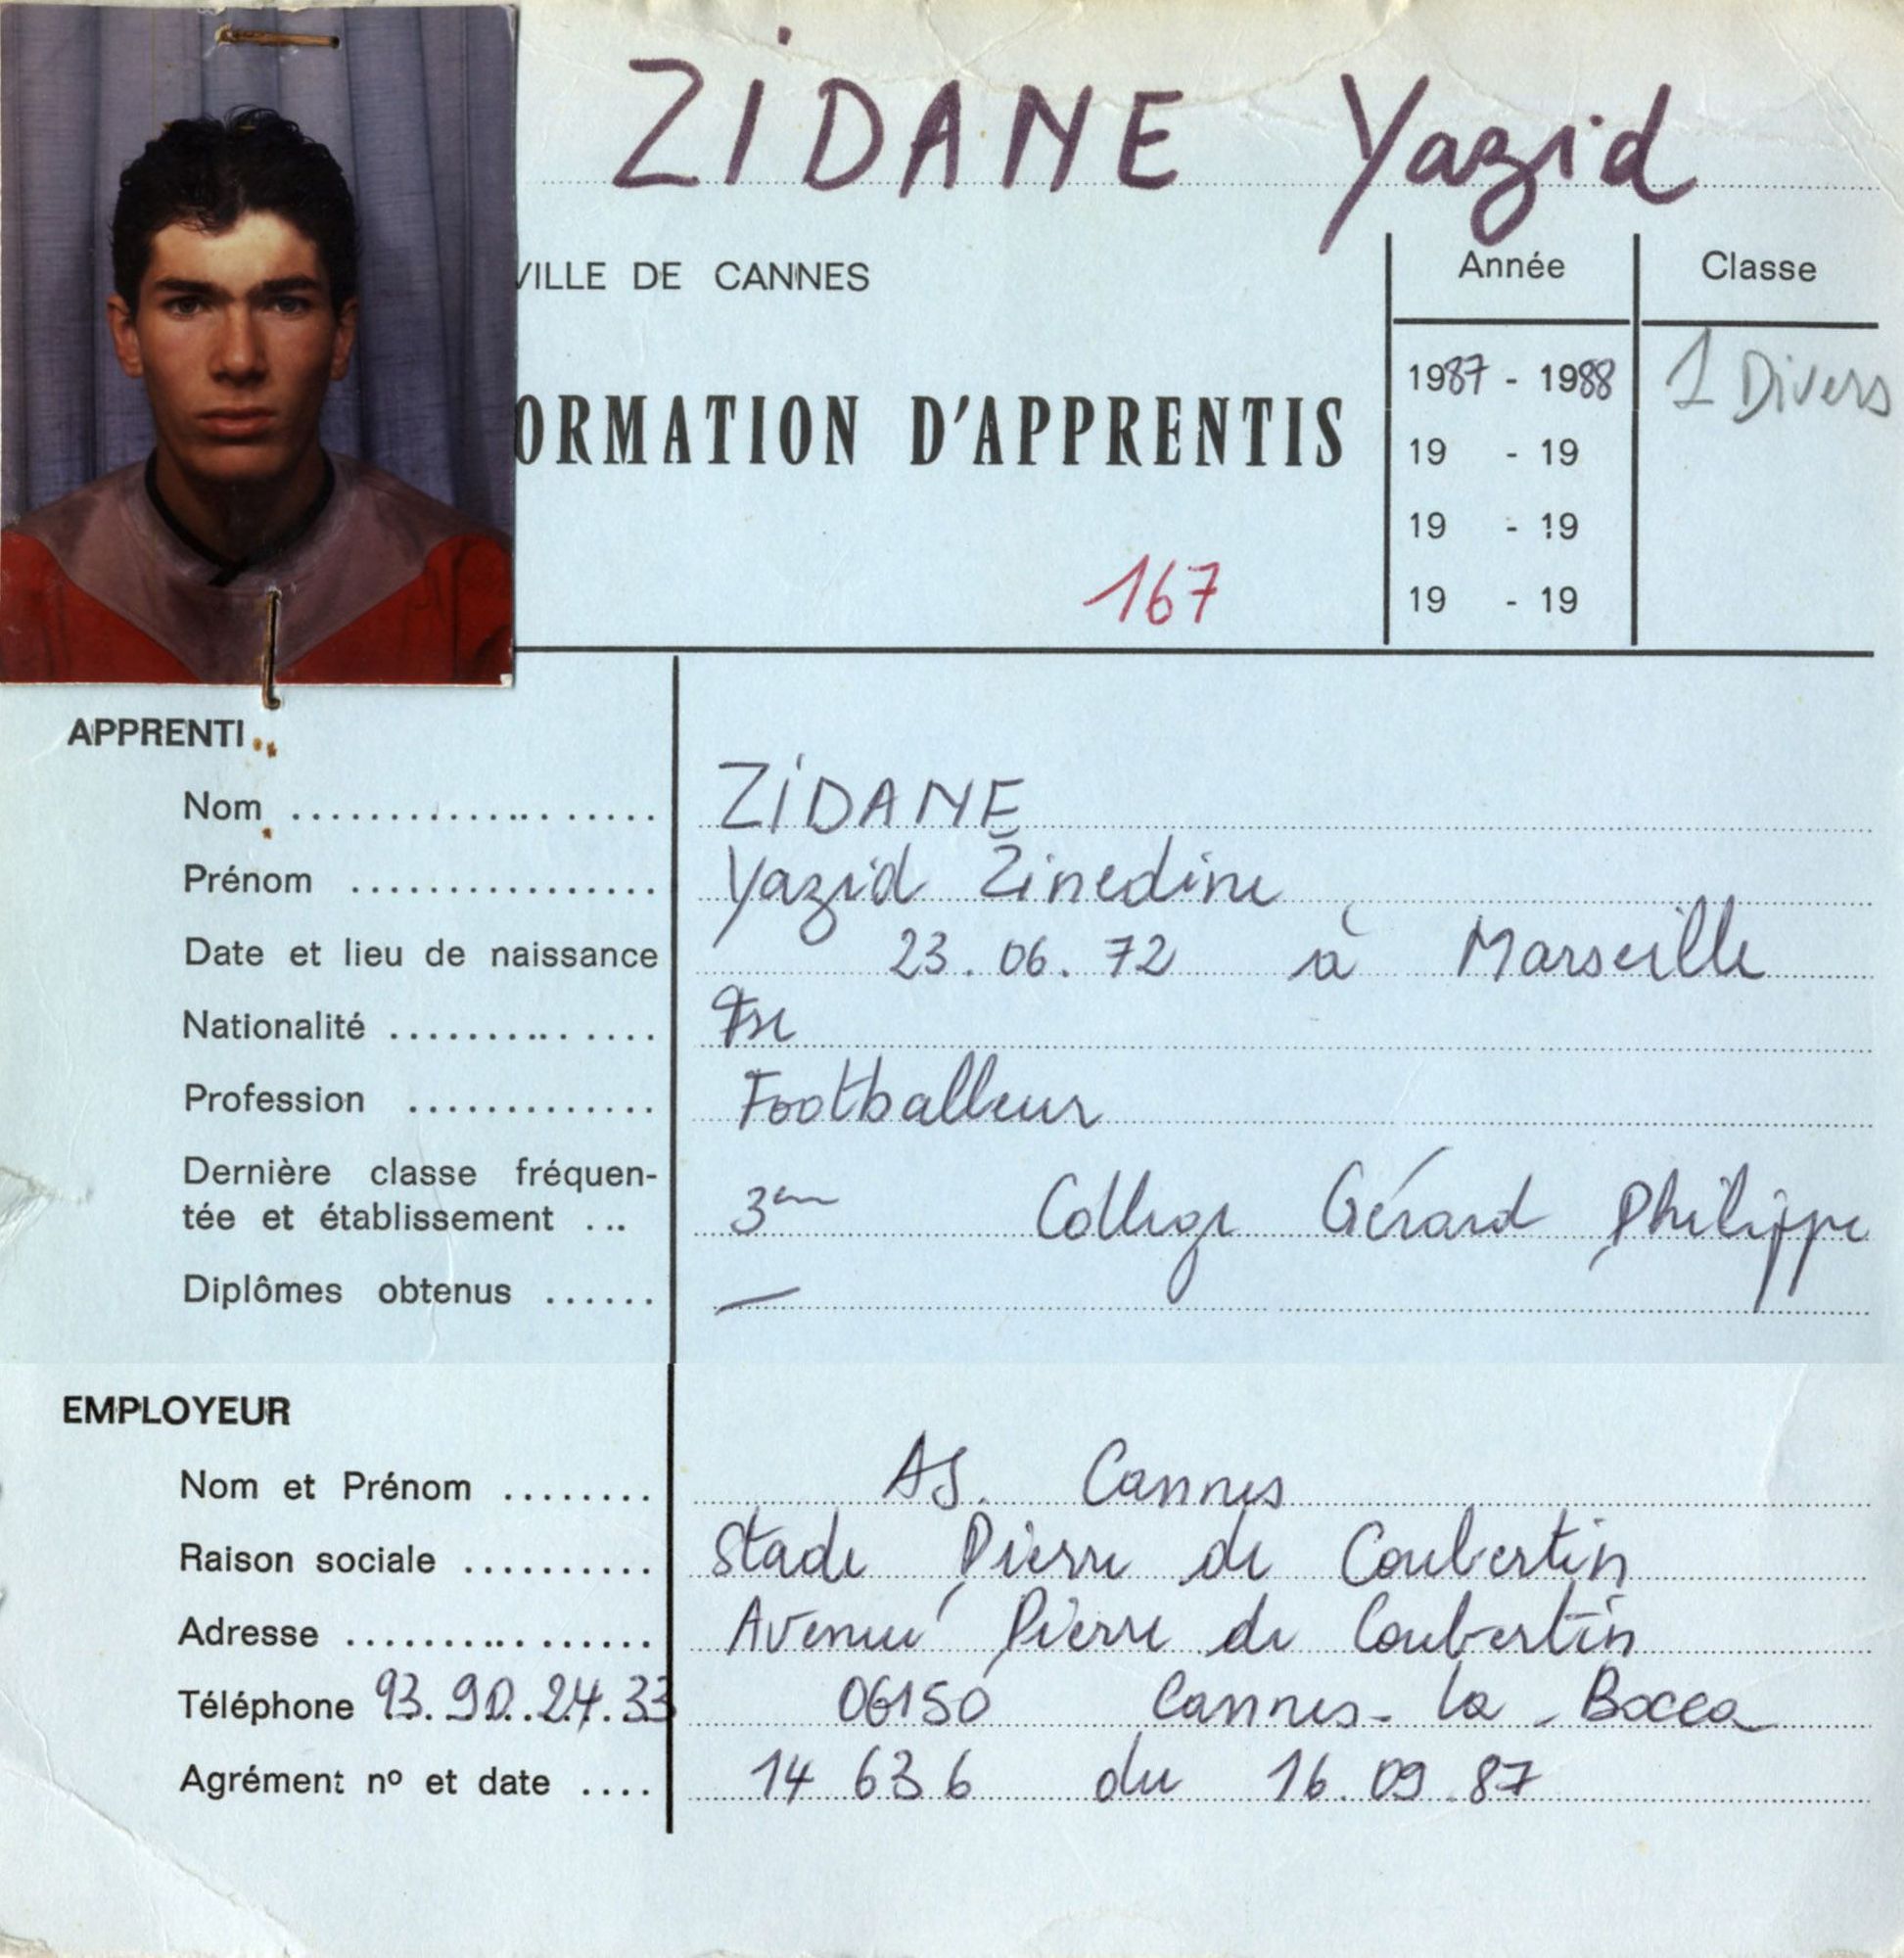 ZIDANE Yazid
VILLE DE CANNES
Année
Classe
ORMATION D'APPRENTIS
1987 - 1988
1 Divers
19 - 19
19 - 19
19 - 19
167
APPRENTI
Nom .................... ZIDANE
Prénom ................ Yazid Zinedine
Date et lieu de naissance 23.06.72 à Marseille
Nationalité .............. Fse
Profession ............. Footballeur
Dernière classe fréquen-
tée et établissement ... 3em College Gérard Philippe
Diplômes obtenus ...... —
EMPLOYEUR
Nom et Prénom ........ AS. Cannes
Raison sociale .......... Stade Pierre de Coubertin
Adresse ................ Avenue Pierre de Coubertin
Téléphone 93.90.24.33 06150 Cannes-la-Bocca
Agrément nº et date .... 14 636 du 16.09.87